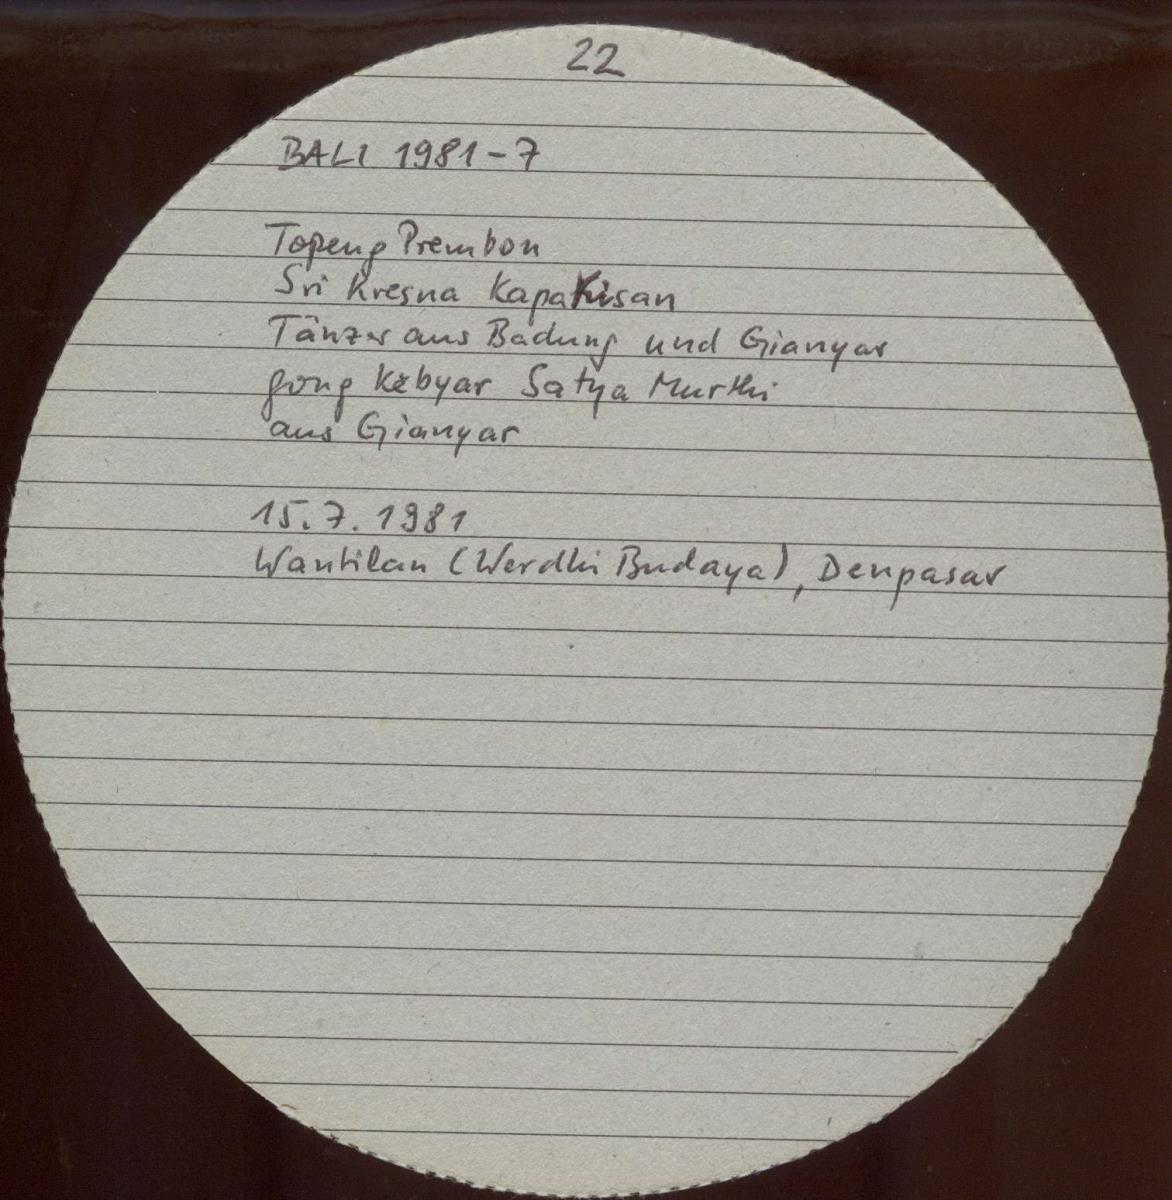 22
BALI 1981-7
Topeng Prembon
Sri Kresna Kapakisan
Tänzer aus Badung und Gianyar
gong kebyar Satya Murthi
aus Gianyar
15.7.1981
Wantilan (Werdhi Budaya), Denpasar